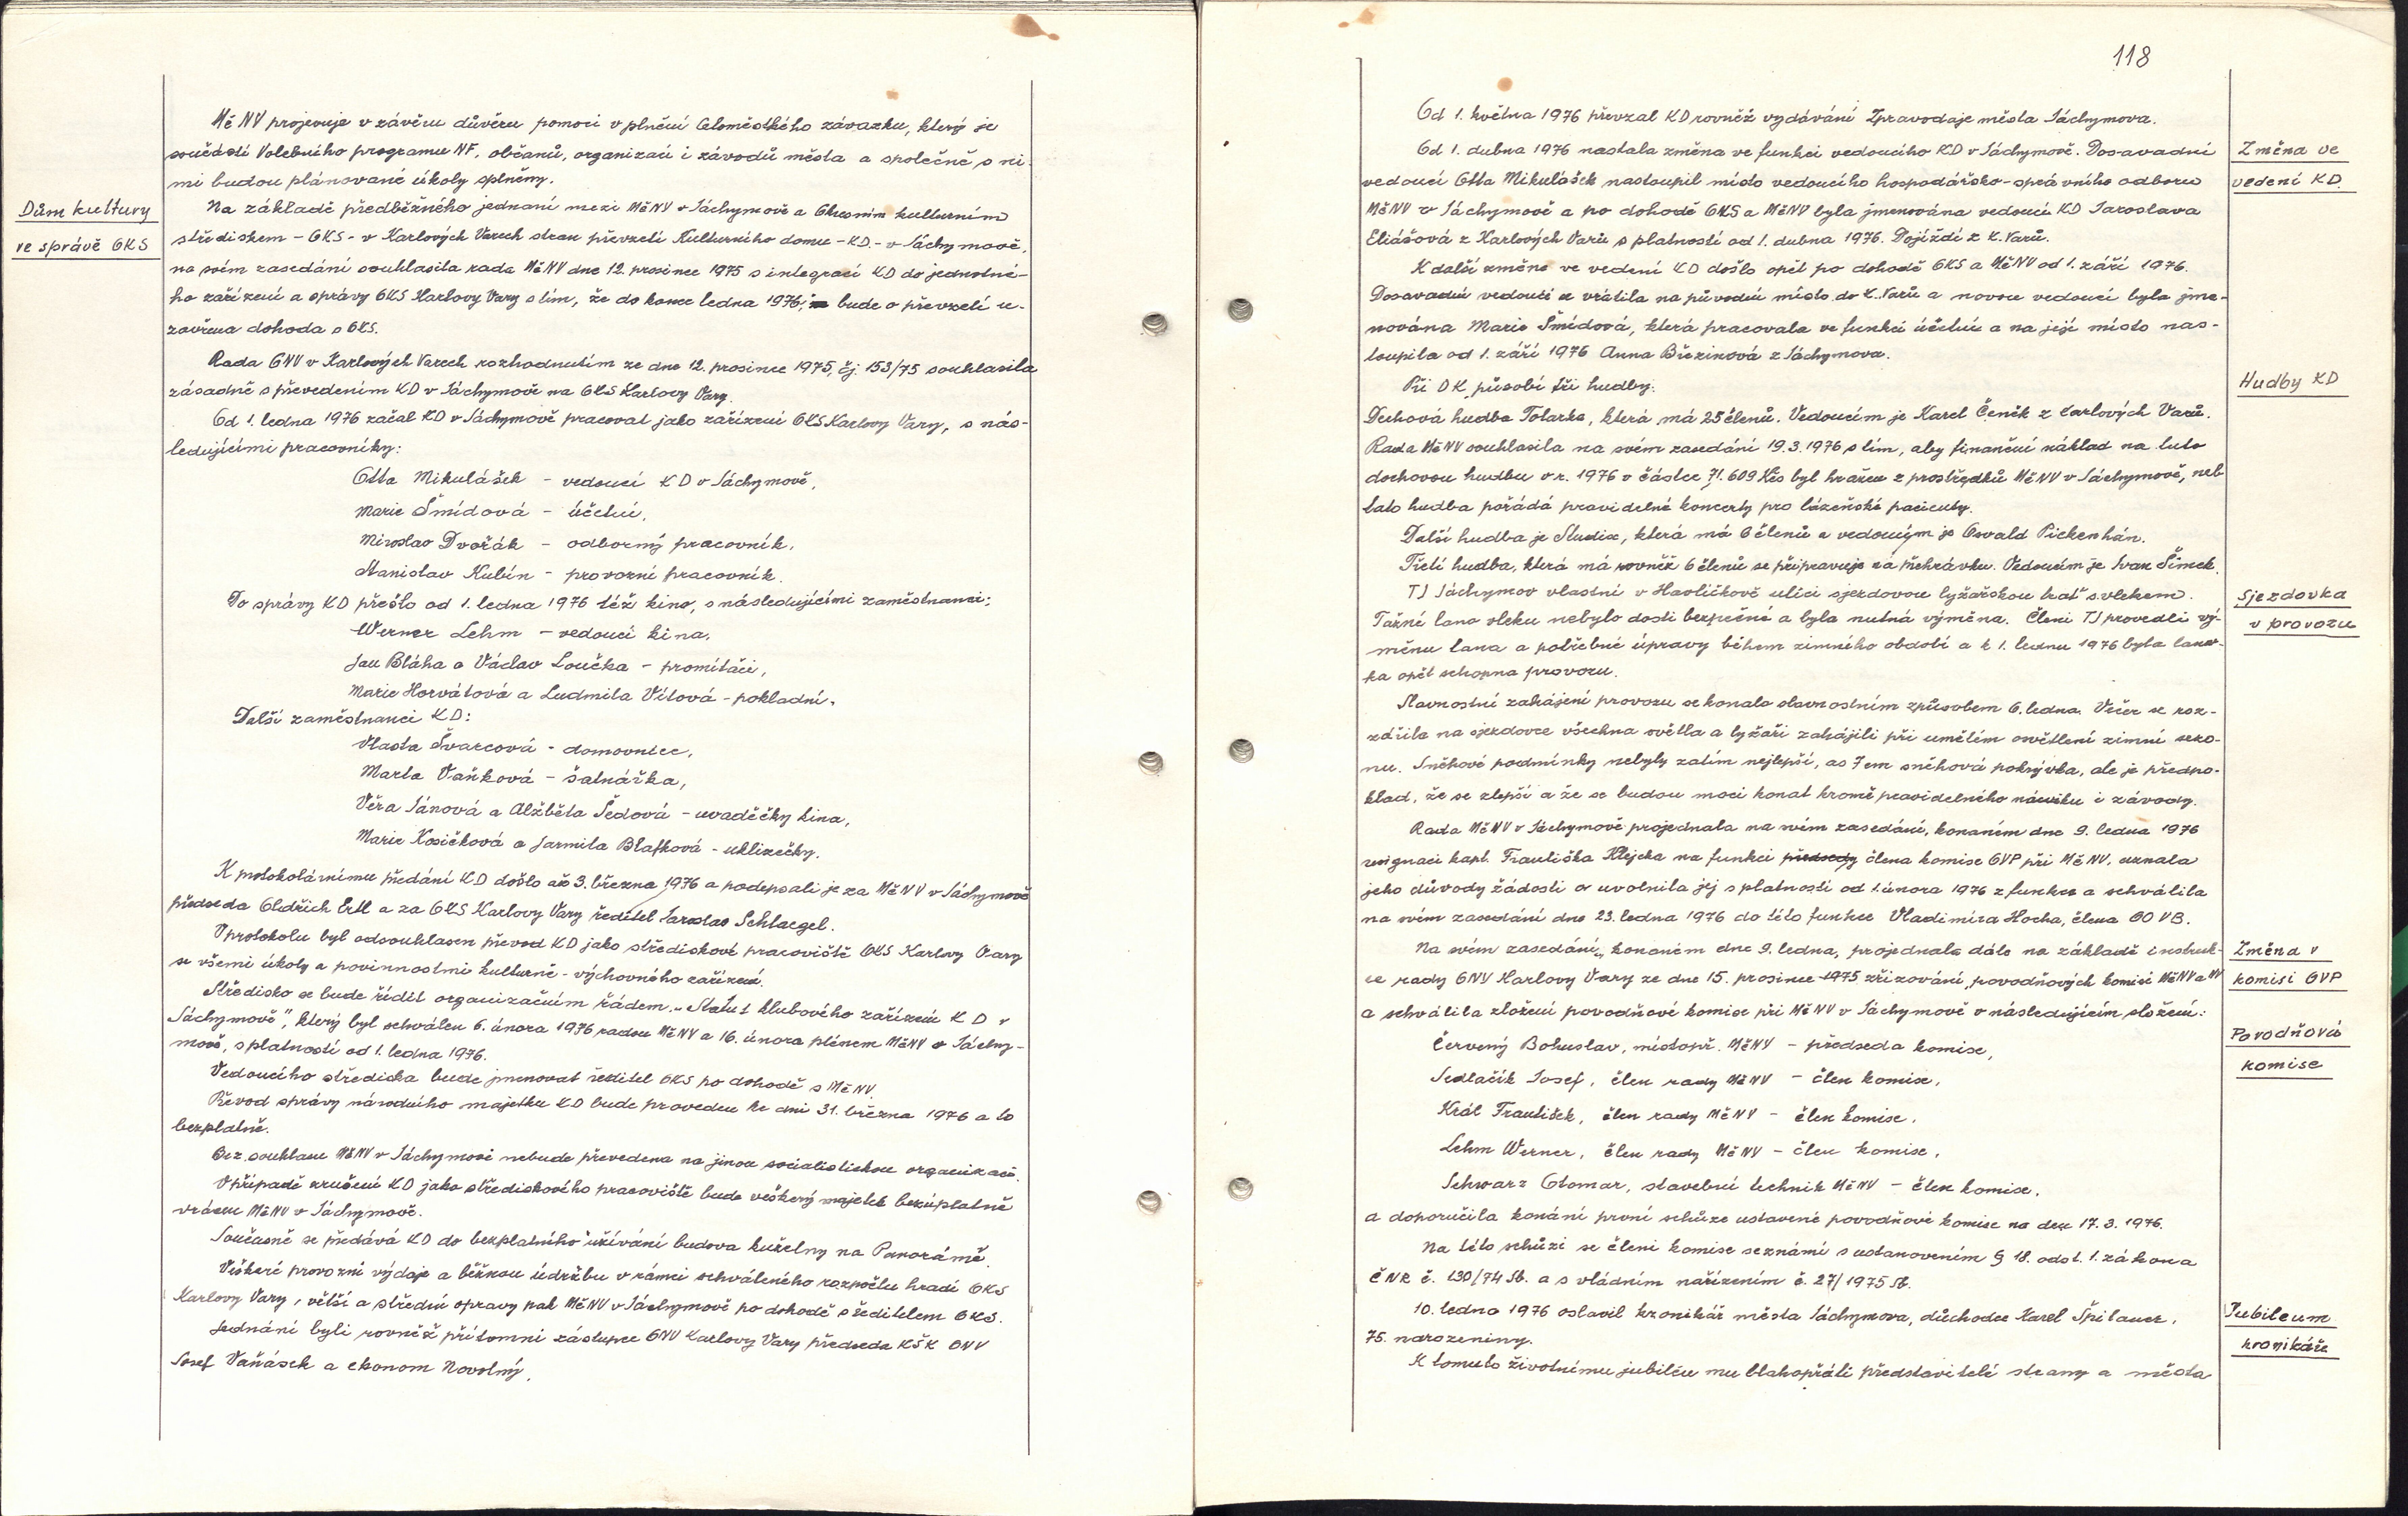 MěNV projevuje v závěru důvěru pomoci v plnění Celoměstského závazku, který je
součástí Volebního programu NF, občanů, organizací i závodů města a společně s ni-
mi budou plánované úkoly splněny.
Dům kultury
ve správě OKS
Na základě předběžného jednání mezi MěNV v Jáchymově a Okresním kulturním
střediskem - OKS - v Karlových Varech stran převzetí Kulturního domu - KD. - v Jáchymově,
na svém zasedání souhlasila rada MěNV dne 12. prosince 1975 s integrací KD do jednotné-
ho zařízení a správy OKS Karlovy Vary s tím, že do konce ledna 1976, bude o převzetí u-
zavřena dohoda s OKS.
Rada ONV v Karlových Varech rozhodnutím ze dne 12. prosince 1975, čj. 153/75 souhlasila
zásadně s převedením KD v Jáchymově na OKS Karlovy Vary.
Od 1. ledna 1976 začal KD v Jáchymově pracovat jako zařízení OKS Karlovy Vary, s nás-
ledujícími pracovníky:
Otta Mikulášek - vedoucí KD v Jáchymově,
Marie Šmídová - účetní,
Miroslav Dvořák - odborný pracovník,
Stanislav Kubín - provozní pracovník.
Do správy KD přešlo od 1. ledna 1976 též kino, s následujícími zaměstnanci:
Werner Lehm - vedoucí kina,
Jan Bláha a Václav Loučka - promítači,
Marie Horvátová a Ludmila Vítová - pokladní.
Další zaměstnanci KD:
Vlasta Švarcová - domovnice,
Marta Vaňková - šatnářka,
Věra Jánová a Alžběta Šedová - uvaděčky kina,
Marie Kosičková a Jarmila Blafková - uklizečky.
K protokolárnímu předání KD došlo až 3. března 1976 a podepsali je za MěNV v Jáchymově
předseda Oldřich Ertl a za OKS Karlovy Vary ředitel Jaroslav Schlaegel.
V protokolu byl odsouhlasen převod KD jako střediskové pracoviště OKS Karlovy Vary
se všemi úkoly a povinnostmi kulturně - výchovného zařízení.
Středisko se bude řídit organizačním řádem „Statut klubového zařízení KD v
Jáchymově", který byl schválen 6. února 1976 radou MěNV a 16. února plénem MěNV v Jáchy-
mově, s platností od 1. ledna 1976.
Vedoucího střediska bude jmenovat ředitel OKS po dohodě s MěNV.
Převod správy národního majetku KD bude proveden ke dni 31. března 1976 a to
bezplatně.
Bez souhlasu MěNV v Jáchymově nebude převedena na jinou socialistickou organizaci.
V případě zrušení KD jako střediskového pracoviště bude veškerý majetek bezúplatně
vrácen MěNV v Jáchymově.
Současně se předává KD do bezplatného užívání budova kuželny na Panorámě.
Veškeré provozní výdaje a běžnou údržbu v rámci schváleného rozpočtu hradí OKS
Karlovy Vary, větší a střední opravy pak MěNV v Jáchymově po dohodě s ředitelem OKS.
Jednání byli rovněž přítomni zástupce ONV Karlovy Vary předseda KŠK ONV
Josef Vaňásek a ekonom Novotný.
118
Od 1. května 1976 převzal KD rovněž vydávání Zpravodaje města Jáchymova.
Změna ve
vedení KD
Od 1. dubna 1976 nastala změna ve funkci vedoucího KD v Jáchymově. Dosavadní
vedoucí Otta Mikulášek nastoupil místo vedoucího hospodářsko-správního odboru
MěNV v Jáchymově a po dohodě OKS a MěNV byla jmenována vedoucí KD Jaroslava
Eliášová z Karlových Varů s platností od 1. dubna 1976. Dojíždí z K. Varů.
K další změně ve vedení KD došlo opět po dohodě OKS a MěNV od 1. září 1976.
Dosavadní vedoucí se vrátila na původní místo do K. Varů a novou vedoucí byla jme-
nována Marie Šmídová, která pracovala ve funkci účetní a na její místo nas-
toupila od 1. září 1976 Anna Březinová z Jáchymova.
Hudby KD
Při DK působí tři hudby:
Dechová hudba Tolarka, která má 25 členů. Vedoucím je Karel Čeněk z Karlových Varů.
Rada MěNV souhlasila na svém zasedání 19.3.1976 s tím, aby finanční náklad na tuto
dechovou hudbu v r. 1976 v částce 71.609 Kčs byl hrazen z prostředků MěNV v Jáchymově, neb
tato hudba pořádá pravidelné koncerty pro lázeňské pacienty.
Další hudba je Studix, která má 6 členů a vedoucím je Osvald Pickenhán.
Třetí hudba, která má rovněž 6 členů se připravuje na přehrávku. Vedoucím je Ivan Šimek.
Sjezdovka
v provozu
TJ Jáchymov vlastní v Havlíčkově ulici sjezdovou lyžařskou trať s vlekem.
Tažné lano vleku nebylo dosti bezpečné a byla nutná výměna. Členi TJ provedli vý-
měnu lana a potřebné úpravy během zimného období a k 1. lednu 1976 byla lanov-
ka opět schopna provozu.
Slavnostní zahájení provozu se konalo slavnostním způsobem 6. ledna. Večer se roz-
zářila na sjezdovce všechna světla a lyžaři zahájili při umělém osvětlení zimní sezo-
nu. Sněhové podmínky nebyly zatím nejlepší, as 7 cm sněhová pokrývka, ale je předpo-
klad, že se zlepší a že se budou moci konat kromě pravidelného nácviku i závody.
Rada MěNV v Jáchymově projednala na svém zasedání, konaném dne 9. ledna 1976
resignaci kapt. Františka Klejcha na funkci předsedy člena komise OVP při MěNV, uznala
jeho důvody žádosti a uvolnila jej s platností od 1. února 1976 z funkce a schválila
na svém zasedání dne 23. ledna 1976 do této funkce Vladimíra Hocha, člena OO VB.
Změna v
komisi OVP
Na svém zasedání, konaném dne 9. ledna, projednala dále na základě instruk-
ce rady ONV Karlovy Vary ze dne 15. prosince 1975 zřizování povodňových komisí MěNV a NV
a schválila složení povodňové komise při MěNV v Jáchymově v následujícím složení:
Povodňová
komise
Červený Bohuslav, místopř. MěNV - předseda komise,
Sedlačík Josef, člen rady MěNV - člen komise,
Král František, člen rady MěNV - člen komise,
Lehm Werner, člen rady MěNV - člen komise,
Schwarz Otomar, stavební technik MěNV - člen komise,
a doporučila konání první schůze ustavené povodňové komise na den 17.3.1976.
Na této schůzi se členi komise seznámí s ustanovením § 18. odst. 1. zákona
ČNR č. 130/74 Sb. a s vládním nařízením č. 27/1975 Sb.
Jubileum
kronikáře
10. ledna 1976 oslavil kronikář města Jáchymova, důchodce Karel Špilauer,
75. narozeniny.
K tomuto životnímu jubileu mu blahopřáli představitelé strany a města